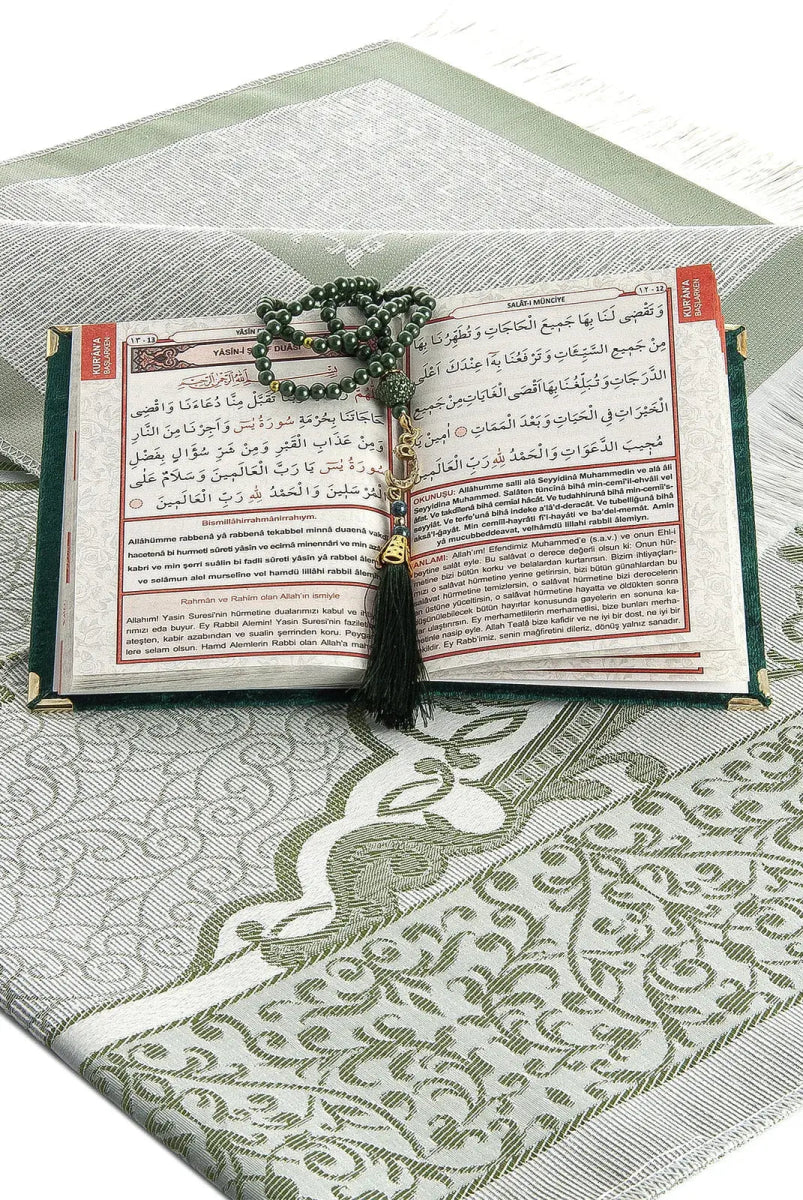 ١٣ - 13
YÂSİN
KUR'ÂN'A
BAŞLARKEN
YÂSİN-İ DUÂSI
تَقَبَّلْ مِنَّا دُعَاءَنَا وَاقْضِ
حَاجَاتَنَا بِحُرْمَةِ سُورَةُ يٰسٓ وَ اَجِرْنَا مِنَ النَّارِ
وَمِنْ عَذَابِ الْقَبْرِ وَمِنْ شَرِّ سُؤَالٍ بِفَضْلِ
سُورَةُ يٰسٓ يَا رَبَّ الْعَالَمِينَ وَسَلَامٌ عَلَى
الْمُرْسَلِينَ وَالْحَمْدُ لِلّٰهِ رَبِّ الْعَالَمِينَ
Bismillâhirrahmânirrahıym.
Allâhümme rabbenâ yâ rabbenâ tekabbel minnâ duaenâ vakd
hacetenâ bi hurmeti sûreti yâsin ve ecirnâ minennâri ve min az
kabri ve min şerri suâlin bi fadli sûreti yâsin yâ rabbil âlem
ve selâmun alel murseline vel hamdü lillâhi rabbil âlem
Rahmân ve Rahîm olan Allah'ın ismiyle
Allahım! Yasin Suresi'nin hürmetine dualarımızı kabul ve ih
rımızı eda buyur. Ey Rabbil Alemin! Yasin Suresi'nin fazilet
ateşten, kabir azabından ve sualin şerrinden koru. Peyga
lere selam olsun. Hamd Alemlerin Rabbi olan Allah'a mah
SALÂT-I MÜNCİYE
١٢ - 12
KUR'ÂN'A
BAŞLARKEN
وَ تَقْضٖى لَنَا بِهَا جَمِيعَ الْحَاجَاتِ وَ تُطَهِّرُنَا بِهَا
مِنْ جَمِيعِ السَّيِّئَاتِ وَ تَرْفَعُنَا بِهَٓا عِنْدَكَ اَعْلَى
الدَّرَجَاتِ وَ تُبَلِّغُنَا بِهَا اَقْصَى الْغَايَاتِ مِنْ جَمِيعِ
الْخَيْرَاتِ فِي الْحَيَاتِ وَ بَعْدَ الْمَمَاتِ اٰمِينَ
مُجِيبَ الدَّعَوَاتِ وَالْحَمْدُ لِلّٰهِ رَبِّ الْعَالَمِينَ
OKUNUŞU: Allâhumme salli alâ Seyyidinâ Muhammedin ve alâ âli
Seyyidinâ Muhammed. Salâten tüncînâ bihâ min-cemî'il-ehvâli vel
âfat. Ve takdîlenâ bihâ cemîal hâcât. Ve tudahhirunâ bihâ min-cemîi's-
seyyiât. Ve terfe'unâ bihâ indeke a'lâ'd-deracât. Ve tubelliğunâ bihâ
aksâ'l-ğayât. Min cemiil-hayrâti fî'l-hayâti ve ba'del-memât. Amin
yâ mucubbeddeavat, vehamdü lillahi rabbil âlemiyn.
ANLAMI: Allah'ım! Efendimiz Muhammed'e (s.a.v.) ve onun Ehl-i
beytine salât eyle. Bu salâvat o derece değerli olsun ki: Onun hür-
metine bizi bütün korku ve belalardan kurtarırsın. Bizim ihtiyaçları-
salâvat hürmetine yerine getirirsin, bizi bütün günahlardan bu
salâvat hürmetine temizlersin, o salâvat hürmetine bizi derecelerin
üstüne yüceltirsin, o salâvat hürmetine hayatta ve öldükten sonra
düşünülebilecek bütün hayırlar konusunda gayelerin en sonuna ka-
ulaştırırsın. Ey merhametlilerin merhametlisi, bize bunları merha-
metinle nasip eyle. Allah Teâlâ bize kafidir ve ne iyi bir dost, ne iyi bir
vekildir. Ey Rabb'imiz. senin mağfiretini dileriz, dönüş yalnız sanadır.